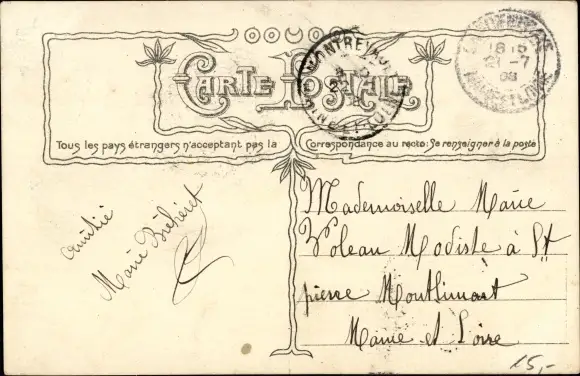 CARTE POSTALE
Tous les pays étrangers n'acceptant pas la Correspondance au recto: Se renseigner à la poste
MONTREV
ET-LOIRE
18 15
21 -7
08
MAINE-ET-LOIRE
amitié
Marie
Mademoiselle Marie
Modiste à St
pierre Montlimart
Maine et Loire
15,-